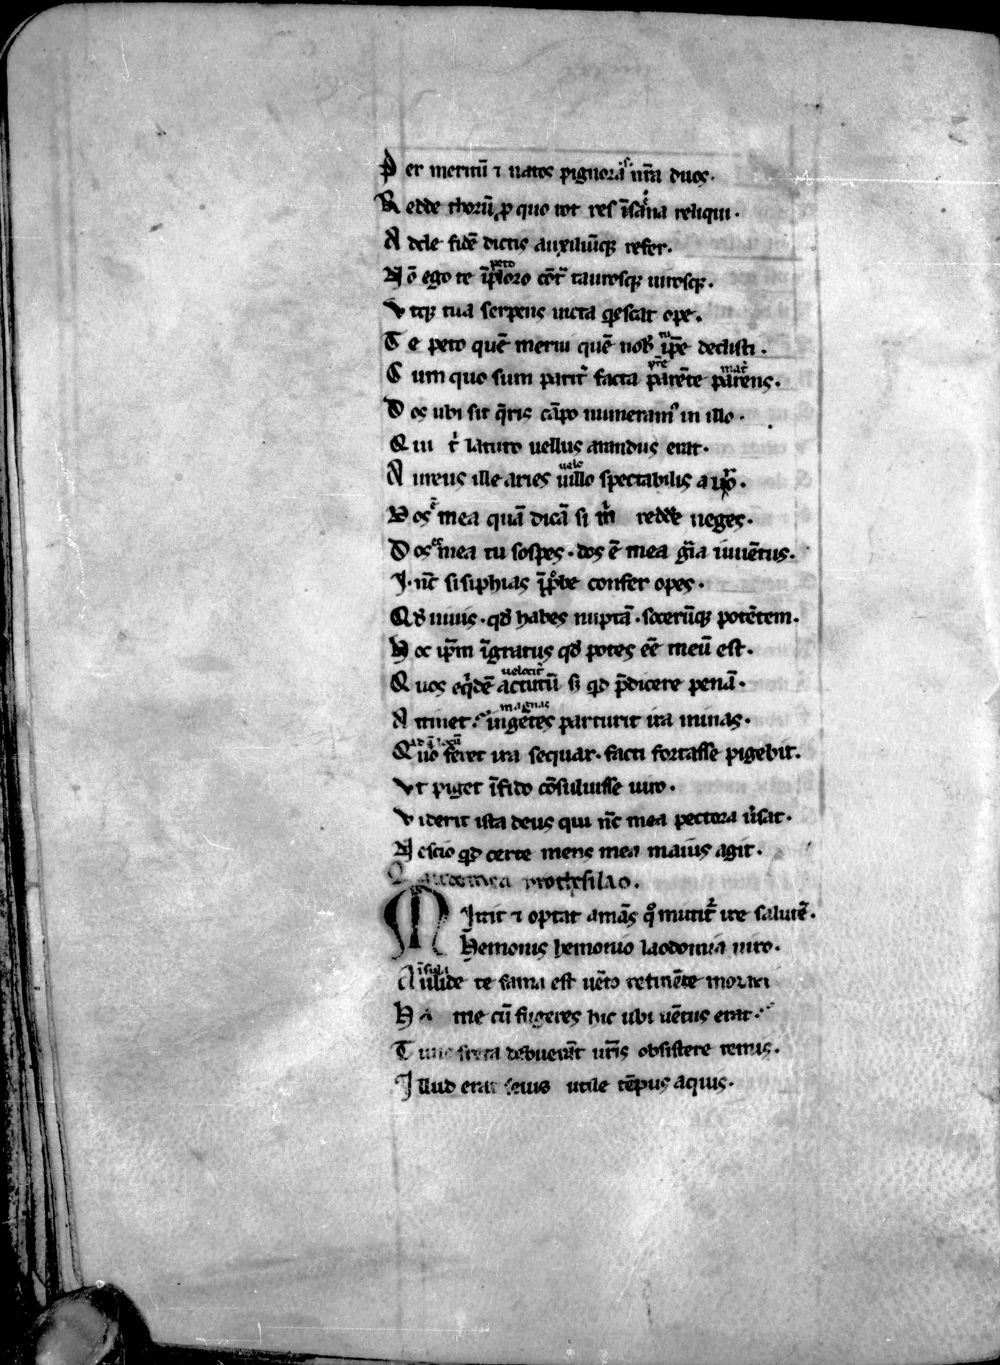 P er meritū ⁊ natos pignora nr̄a duos.
R edde thorū ꝓ quo tot res īsana reliqui.
A dele fidē dictis auxiliūqꝫ refer.
peto
N ō ego te īploro cōt̄ taurosqꝫ uirosqꝫ.
V tqꝫ tua serpens uicta qescat ope.
tu
T e peto quē merui quē nob̾ ip̄e dedisti.
pr̄e mat̄
C um quo sum parit̾ facta parēte parens.
D os ubi sit q̄ris cāpo numeram᷒ in illo.
Q ui t̾ laturo uellus arandus erat.
uelo
A ureus ille aries uillo spectabilis a uro.
D os ē mea quā dicā si m̾ redde neges.
D os ē mea tu sospes. dos ē mea gr̄a iuuētus.
I. nc̄ sisiphias īprobe confer opes.
Qd̾ uiuis. qd̾ habes nuptā. socerūqꝫ potētem.
H oc ip̄m īgratus qd̾ potes eē meū est.
uelocit̾
Q uos eq̾dē actutū sꝫ qd p̄dicere penā.
magnas
A ttinet. īgētes parturit ira minas.
ad q̄ locū
Q uo feret ira sequar. facti fortasse pigebit.
V t piget īfido cōsuluisse uiro.
V iderit ista deus qui nc̄ mea pectora u̾sat.
N escio qd certe mens mea maius agit.
prothesilao.
M ittit ⁊ optat amās qͦ mittit̾ ire salutē.
Hemonis hemonio laodomia uiro.
īsula
A ulide te fama est uēto retinēte morari
H a me cū fugeres hic ubi uētus erat.
T unc freta debuerāt ur̄is obsistere remis.
I llud erat seuis utile tēpus aquis.